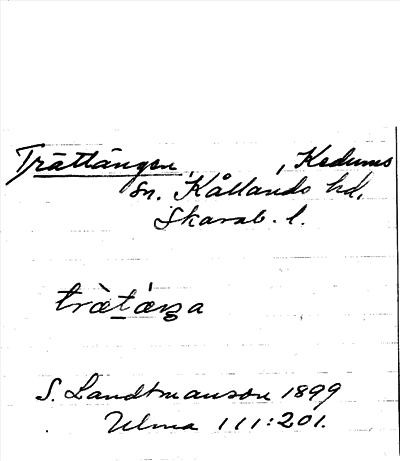 Trättängen, Kedums
sn. Kållands hd,
Skarab. l.
trätäŋa
S. Landtmanson 1899
Ulma 111:201.